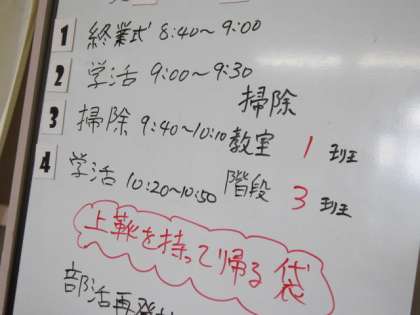 1 終業式 8:40～9:00
2 学活 9:00～9:30
掃除
3 掃除 9:40～10:10 教室 1 班
4 学活 10:20～10:50 階段 3 班
上靴を持って帰る 袋
部活再登